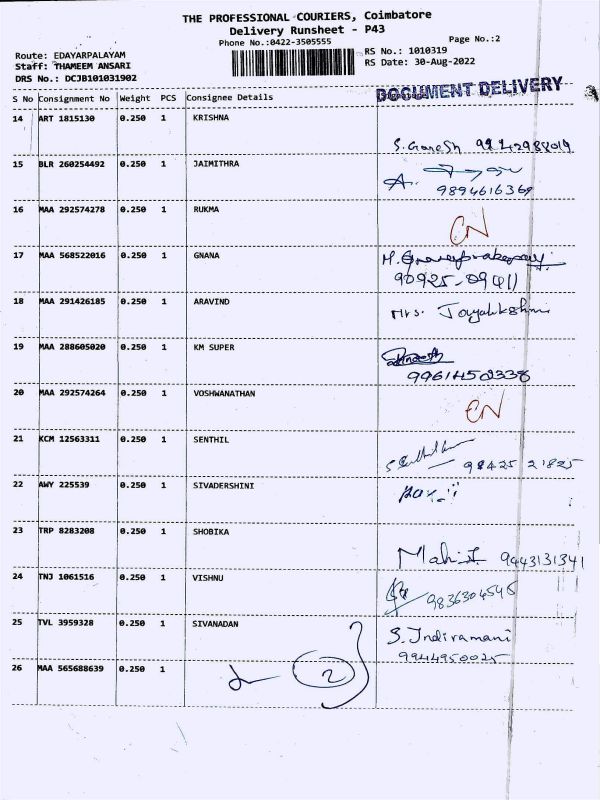 THE PROFESSIONAL COURIERS, Coimbatore
Delivery Runsheet - P43
Phone No.:0422-3505555
Page No.:2
Route: EDAYARPALAYAM
RS No.: 1010319
Staff: THAMEEM ANSARI
RS Date: 30-Aug-2022
DRS No.: DCJB101031902
DOCUMENT DELIVERY
S No Consignment No Weight PCS Consignee Details
14 ART 1815130 0.250 1 KRISHNA
S. Ganesh
15 BLR 260254492 0.250 1 JAIMITHRA
A.
9894616369
16 MAA 292574278 0.250 1 RUKMA
CN
17 MAA 568522016 0.250 1 GNANA
90925-09411
18 MAA 291426185 0.250 1 ARAVIND
Mrs. Jayalakshmi
19 MAA 288605020 0.250 1 KM SUPER
9961452338
20 MAA 292574264 0.250 1 VOSHWANATHAN
CN
21 KCM 12563311 0.250 1 SENTHIL
98425 21825
22 AWY 225539 0.250 1 SIVADERSHINI
23 TRP 8283208 0.250 1 SHOBIKA
9443131341
24 TNJ 1061516 0.250 1 VISHNU
9836304545
25 TVL 3959328 0.250 1 SIVANADAN
S. Indiramani
9944950025
26 MAA 565688639 0.250 1
2